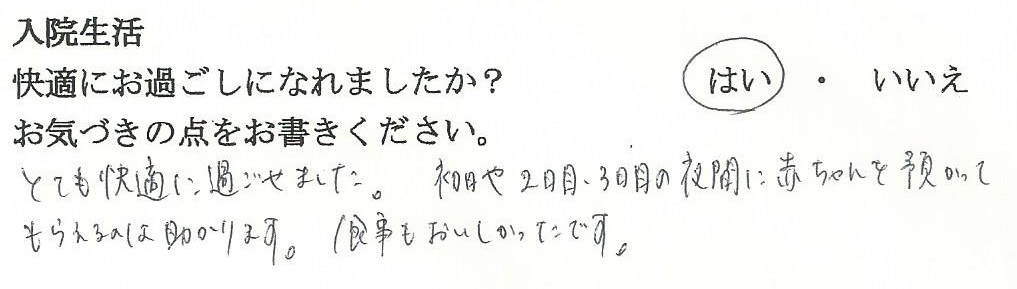 入院生活
快適にお過ごしになれましたか？ はい ・ いいえ
お気づきの点をお書きください。
とても快適に過ごせました。 初日や2日目、3日目の夜間に赤ちゃんを預かって
もらえるのは助かります。食事もおいしかったです。